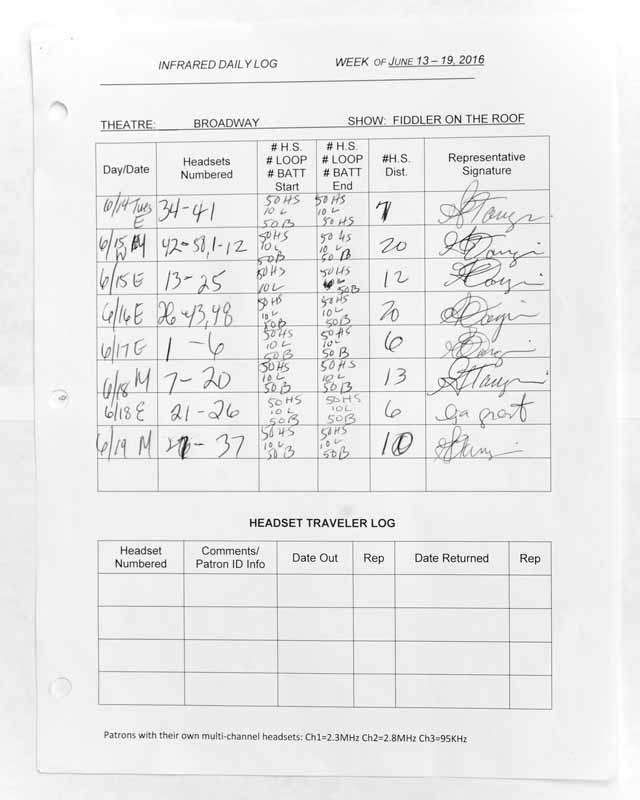 INFRARED DAILY LOG WEEK OF JUNE 13 – 19, 2016
THEATRE: BROADWAY SHOW: FIDDLER ON THE ROOF
Day/Date Headsets Numbered # H.S. # LOOP # BATT Start # H.S. # LOOP # BATT End #H.S. Dist. Representative Signature
6/14 Tues E 34-41 50 HS 10 L 50 B 50 HS 10 L 50 HS 7
6/15 M W 42-50, 1-12 50 HS 10 L 50B 50 HS 10 L 50 B 20
6/15 E 13-25 50 HS 10 L 50 HS 50B 12
6/16 E 26-43, 48 50 HS 10 L 50B 50 HS 10 L 50B 20
6/17 E 1-6 50 HS 10 L 50B 50 HS 10 L 50B 6
6/18 M 7-20 50 HS 10 L 50 B 50 HS 10 L 50 B 13
6/18 E 21-26 50 HS 10 L 50 B 50 HS 10 L 50 B 6
6/19 M 27-37 50 HS 10 L 50B 50 HS 10 L 50B 10
HEADSET TRAVELER LOG
Headset Numbered Comments/ Patron ID Info Date Out Rep Date Returned Rep
Patrons with their own multi-channel headsets: Ch1=2.3MHz Ch2=2.8MHz Ch3=95KHz